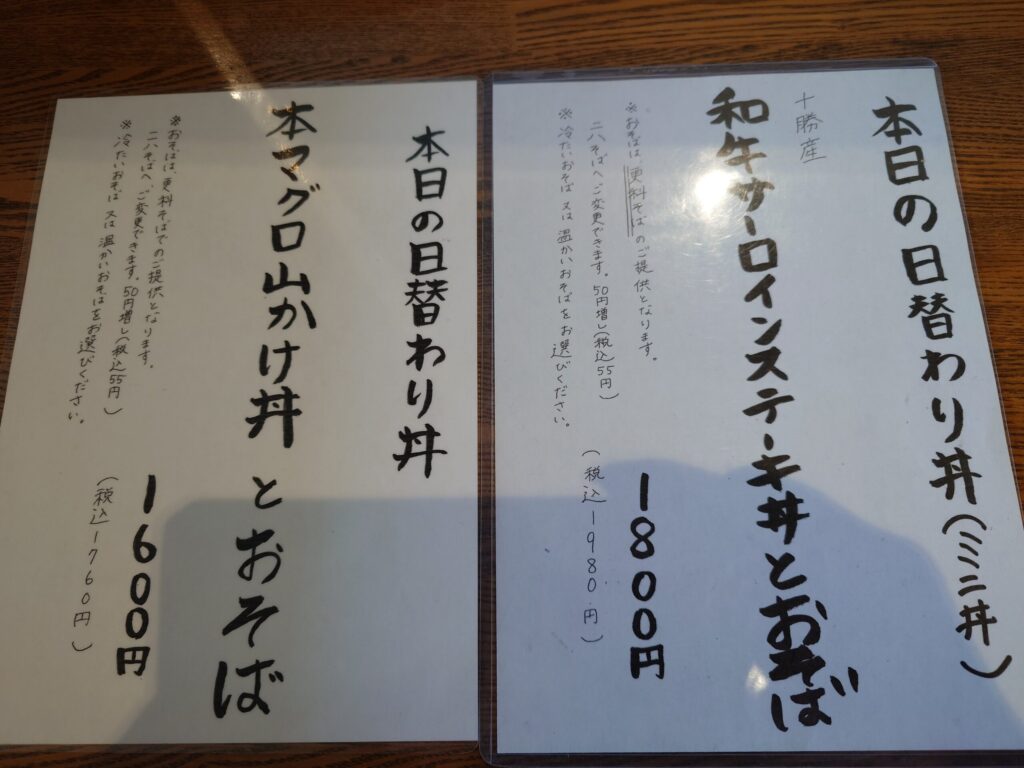 本日の日替わり丼(ミニ丼)
十勝産
和牛サーロインステーキ丼とおそば
※おそばは、更科そばのご提供となります。
二八そばへご変更できます。50円増し(税込55円)
※冷たいおそば又は温かいおそばをお選びください。
1800円
(税込1980円)
本日の日替わり丼
本マグロ山かけ丼とおそば
※おそばは、更科そばでのご提供となります。
二八そばへ、ご変更できます。50円増し(税込55円)
※冷たいおそば又は温かいおそばをお選びください。
1600円
(税込1760円)